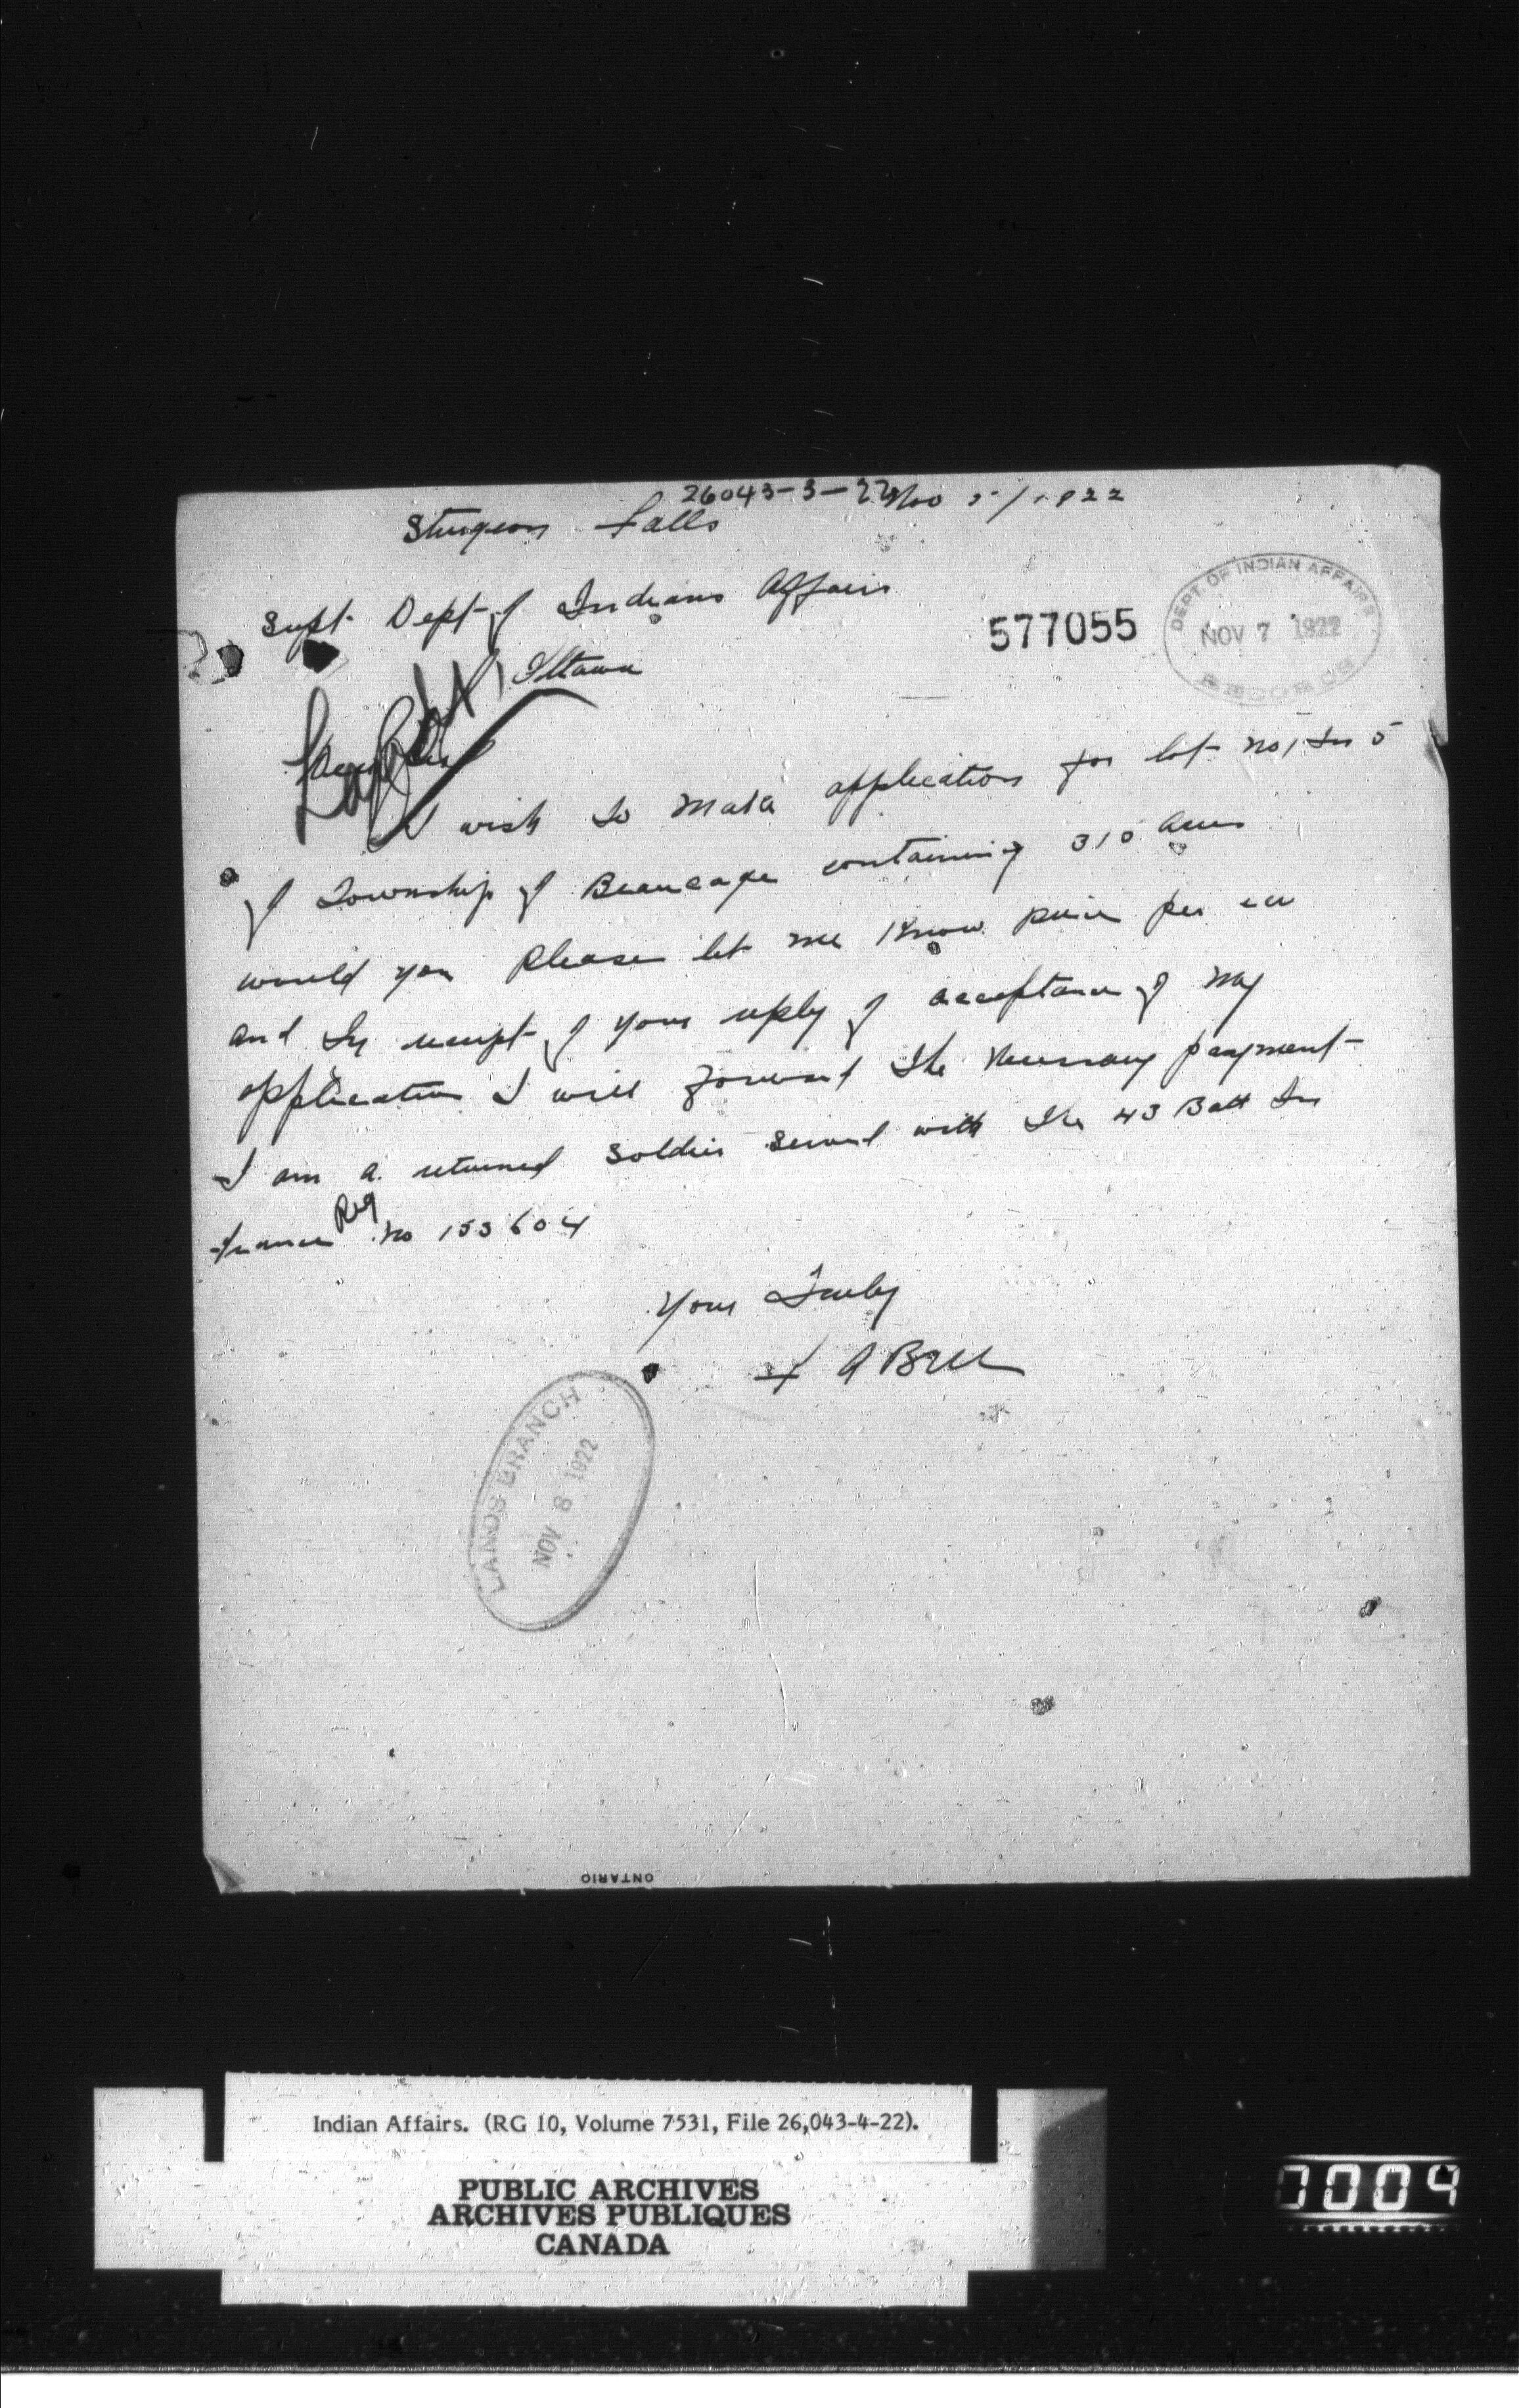 26043-3-22
Sturgeon Falls Nov 5/1922
Supt. Dept of Indians Affairs
577055
DEPT. OF INDIAN AFFAIRS
NOV 7 1922
RECORDS
Ottawa
I wish to make application for lot no 1 In 5
of Township of Beaucage containing 310 acres
would you Please let me Know price per
and In receipt of your reply of acceptance of my
application I will forward the necessary payment
I am a returned soldier served with the 43 Batt In
france Reg no 153604
Your Truly
A Bell
LANDS BRANCH
NOV 8 1922
ONTARIO
Indian Affairs. (RG 10, Volume 7531, File 26,043-4-22).
PUBLIC ARCHIVES
ARCHIVES PUBLIQUES
CANADA
0004